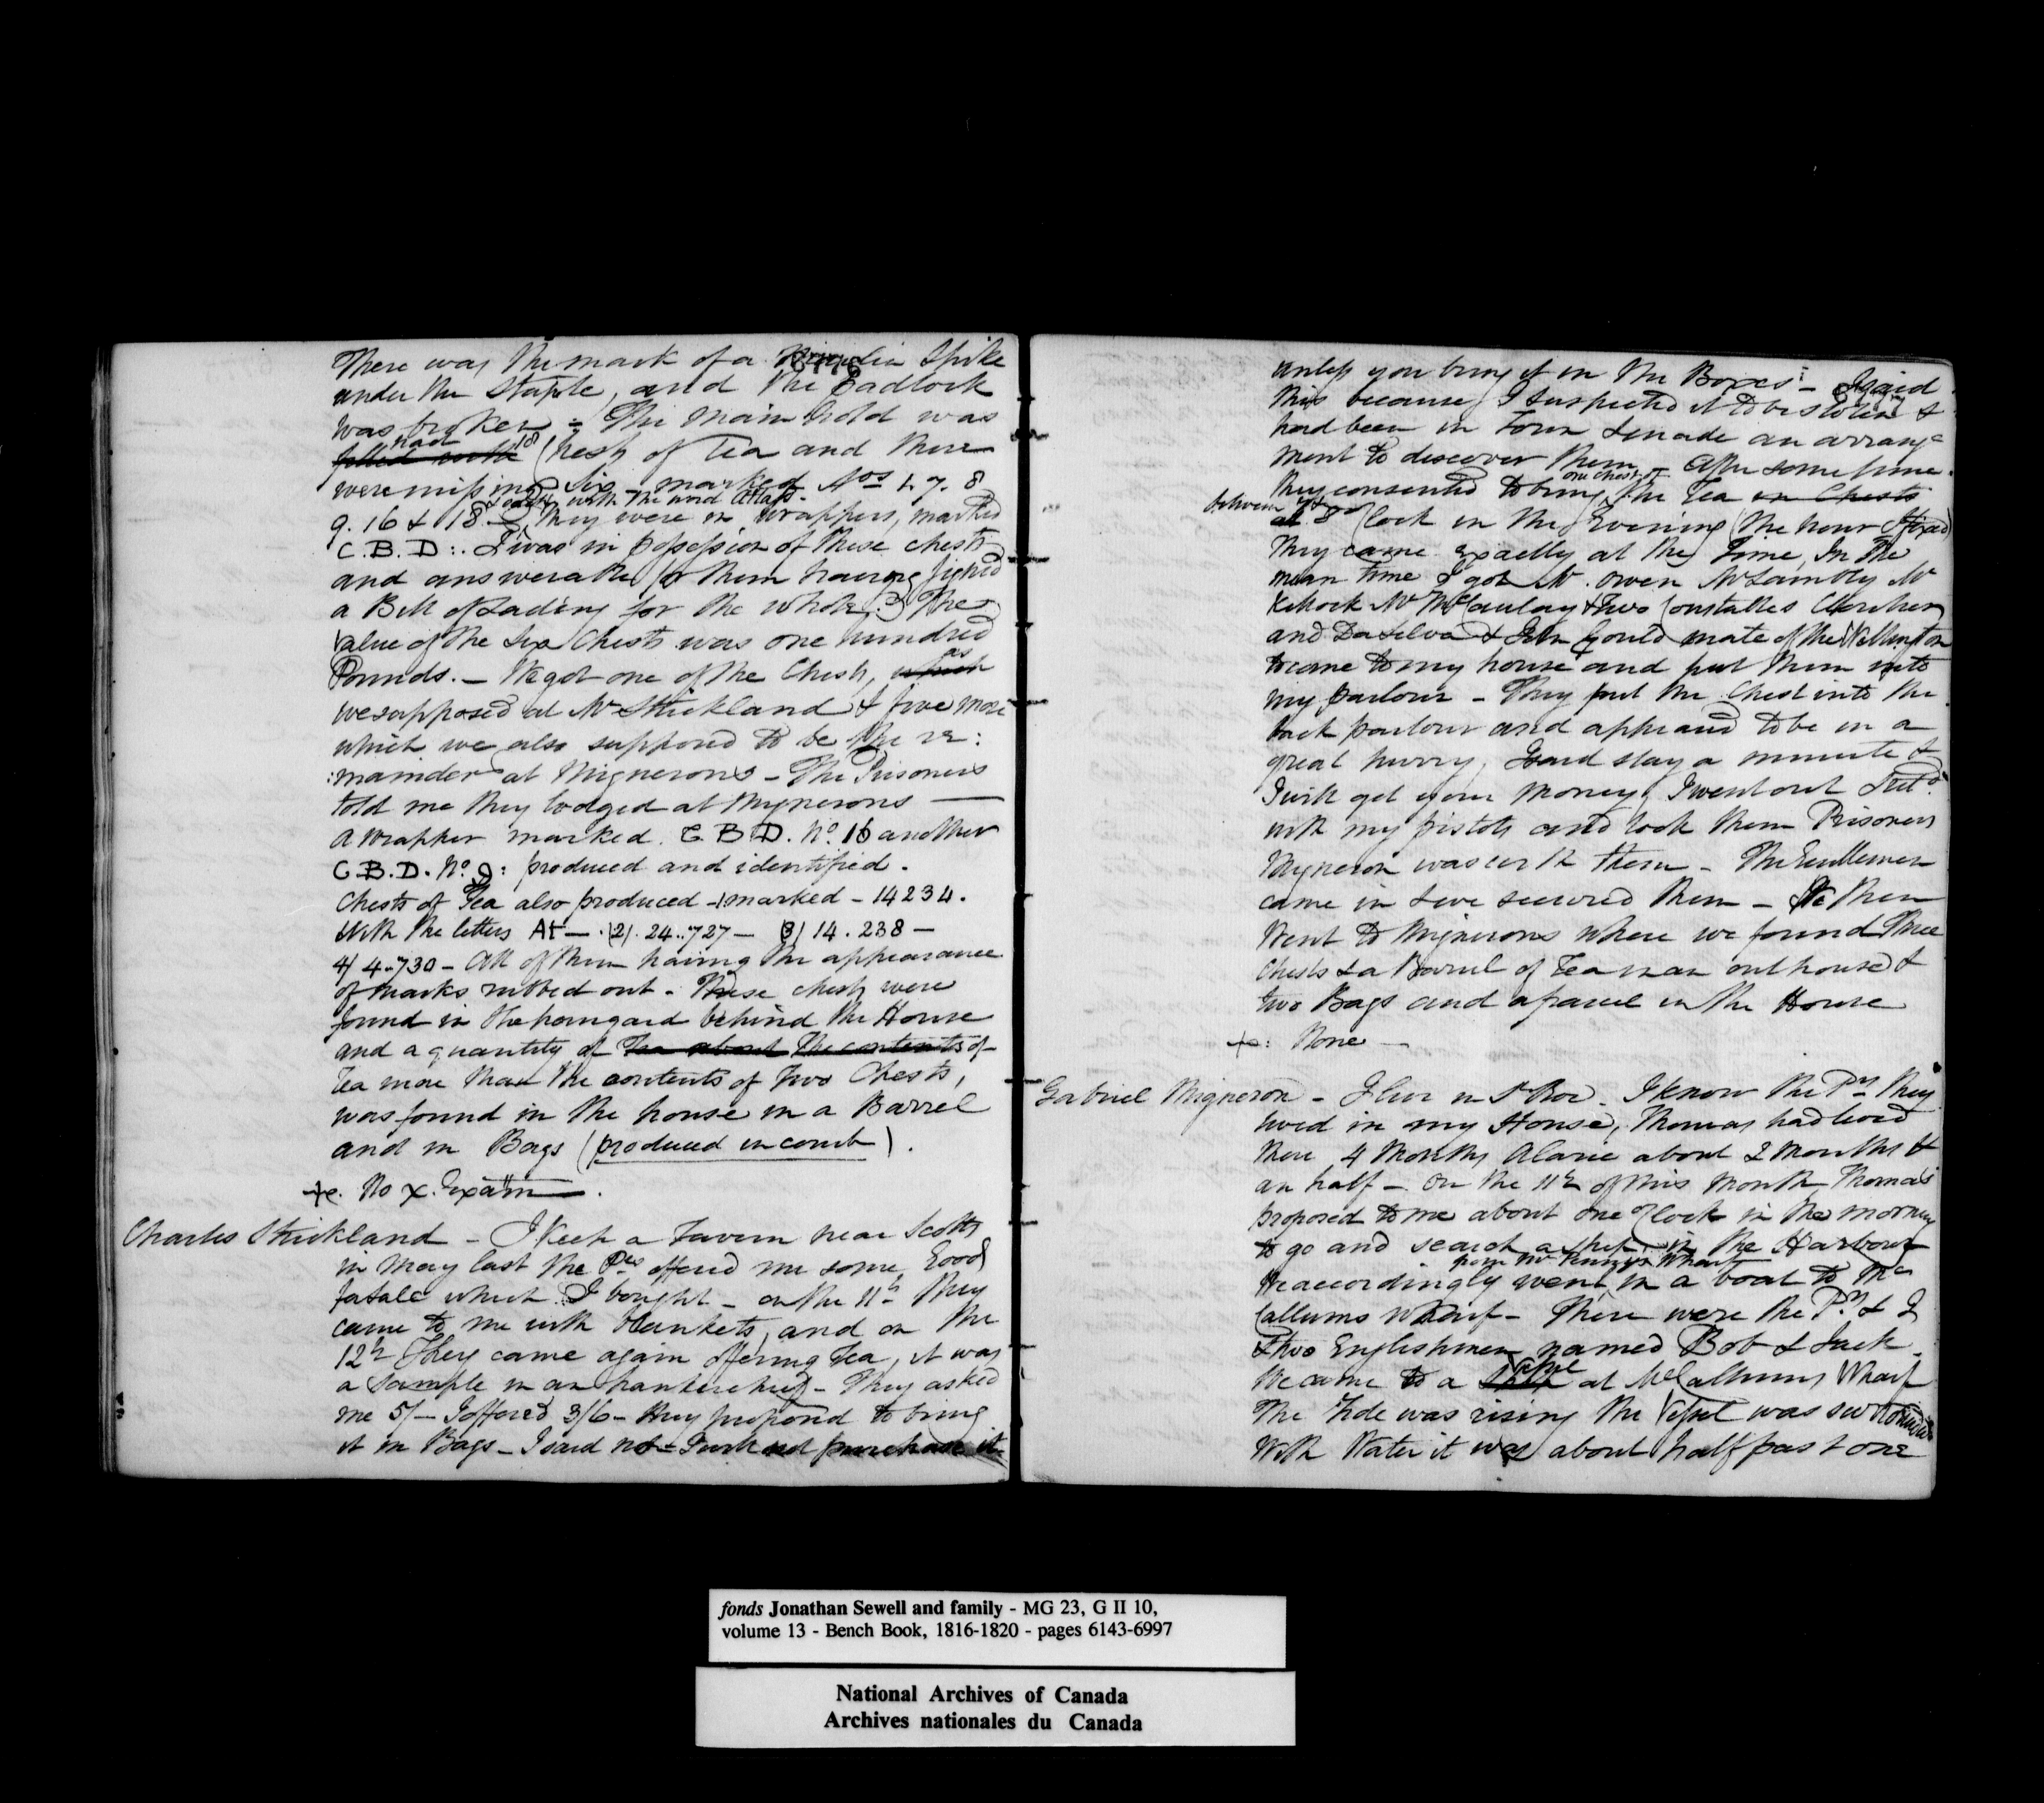 There was the mark of a Marlin Spike
6776
under the Staple, and the Padlock
was broken - The main hold was
had 18
filled with Chests of Tea and there
were missing Six - marked Nos 1. 7. 8
with the word
9. 16 & 18 - They were in wrappers, marked
C. B. D :. I was in possession of these chests
and answerable for them having signed
a Bill of Lading for the whole. The
value of the Six Chests was one hundred
Pounds. - We got one of the Chests, which as
we supposed at Mr Strickland & five more
which we also supposed to be the re:
:mainder at Mignerons - The Prisoners
told me they lodged at Mignerons -
a wrapper marked. C. B D. No. 16 another
C. B. D. No. 9: produced and identified.
Chests of Tea also produced - 1. marked - 14234.
With the letters At - . (2). 24..727 - 3) 14. 238 -
4) 4..730 - All of them having the appearance
of marks rubbed out - These chests were
found in the behind the House
and a quantity of Tea about the contents of
Tea more than the contents of two Chests,
was found in the house in a Barrel
and in Bags (produced in court).
No X. Exam
Charles Strickland - I keep a Tavern near Scotts
in May last the Prs offered me some Goods
for sale which I bought - on the 11th They
came to me with blankets, and on the
12th They came again offering Tea, it was
a Sample in an hankerchief - They asked
me 5/- I offered 3/6 - they proposed to bring
it in Bags - I said not - I will not purchase it
unless you bring it in the Boxes: - I said
6777
this because I suspected it to be stolen &
had been in Town & made an arrange
ment to discover them - After some time
one chest of
they consented to bring the Tea in Chests
between 7 &
at 8 oClock in the Evening (the hour I fixed)
They came exactly at the time, In the
mean time I got Mr. Owen Mr Lambly Mr
Mr McCaulay & two Constables
and Da Silva & John Gould mate of the Wellington
to come to my house and put them into
my parlour - They put the Chest into the
back parlour and appeared to be in a
great hurry, I said stay a minute &
I will get your money, I went out &
with my pistols and took them Prisoners
Migneron was with them - The Gentlemen
came in & we secured them - We then
Went to Mignerons where we found three
Chests & a Barrel of Tea in an outhouse &
two Bags and a parcel in the House
None -
Gabriel Migneron - I live in St Roc. I know the Prs They
lived in my House, Thomas had lived
there 4 Months Alarie about 2 Months &
an half - On the 11th of this month Thomas
proposed to me about one oClock in the morning
to go and search a ship in the Harbour
from Mr Wharf
We accordingly went in a boat to Mc
Callums Wharf - There were the Prs & I
& two Englishmen named Bob & Jack.
We came to a Ship at McCallums Wharf
The Tide was rising the Vessel was surrounded
With Water it was about half past one
fonds Jonathan Sewell and family - MG 23, G II 10,
volume 13 - Bench Book, 1816-1820 - pages 6143-6997
National Archives of Canada
Archives nationales du Canada